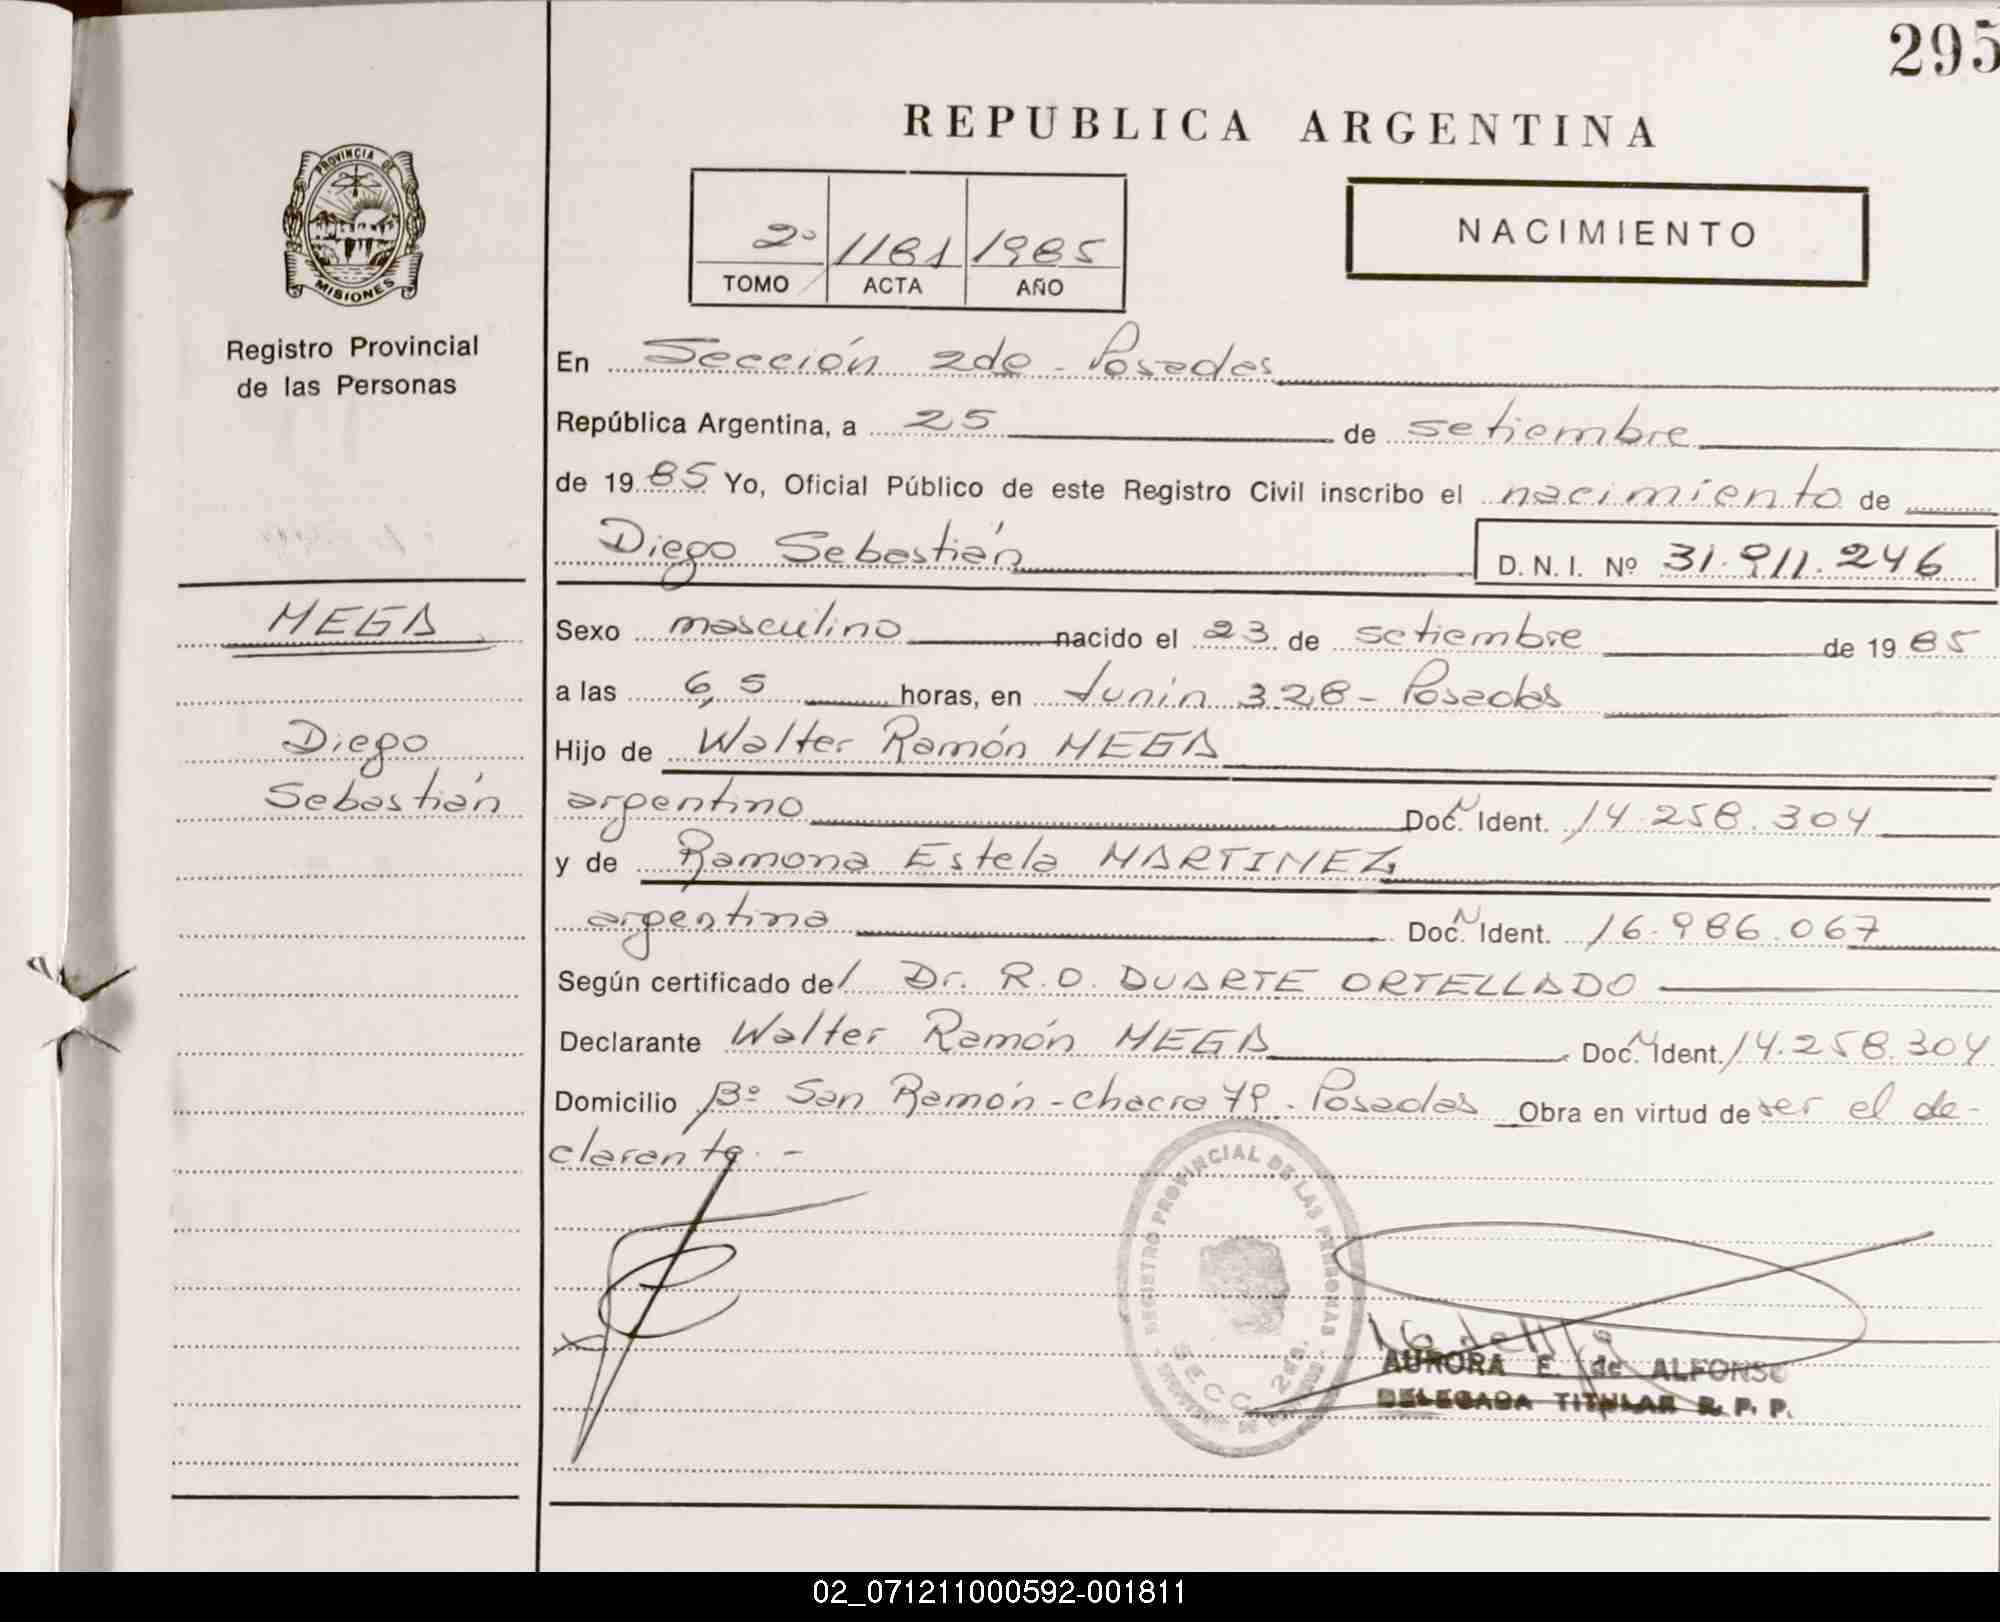 295
REPUBLICA ARGENTINA
PROVINCIA DE
MISIONES
2º 1181 1985
TOMO ACTA AÑO
NACIMIENTO
Registro Provincial
de las Personas
En Sección 2da - Posadas
República Argentina, a 25 de setiembre
de 1985 Yo, Oficial Público de este Registro Civil inscribo el nacimiento de
Diego Sebastián D. N. I. Nº 31.911.246
MEGA
Sexo masculino nacido el 23 de setiembre de 1985
a las 6,5 horas, en Junín 328 - Posadas
Diego
Hijo de Walter Ramón MEGA
Sebastián
argentino Doc. N Ident. 14.258.304
y de Ramona Estela MARTINEZ
argentina Doc. N Ident. 16.986.067
Según certificado del Dr. R.O. DUARTE ORTELLADO
Declarante Walter Ramón MEGA Doc. N Ident. 14.258.304
Domicilio Bº San Ramón - chacra 79 - Posadas Obra en virtud de ser el de-
clarante. -
REGISTRO PROVINCIAL DE LAS PERSONAS
SECC. 2da.
AURORA E. de ALFONSO
DELEGADA TITULAR R. P. P.
02_071211000592-001811